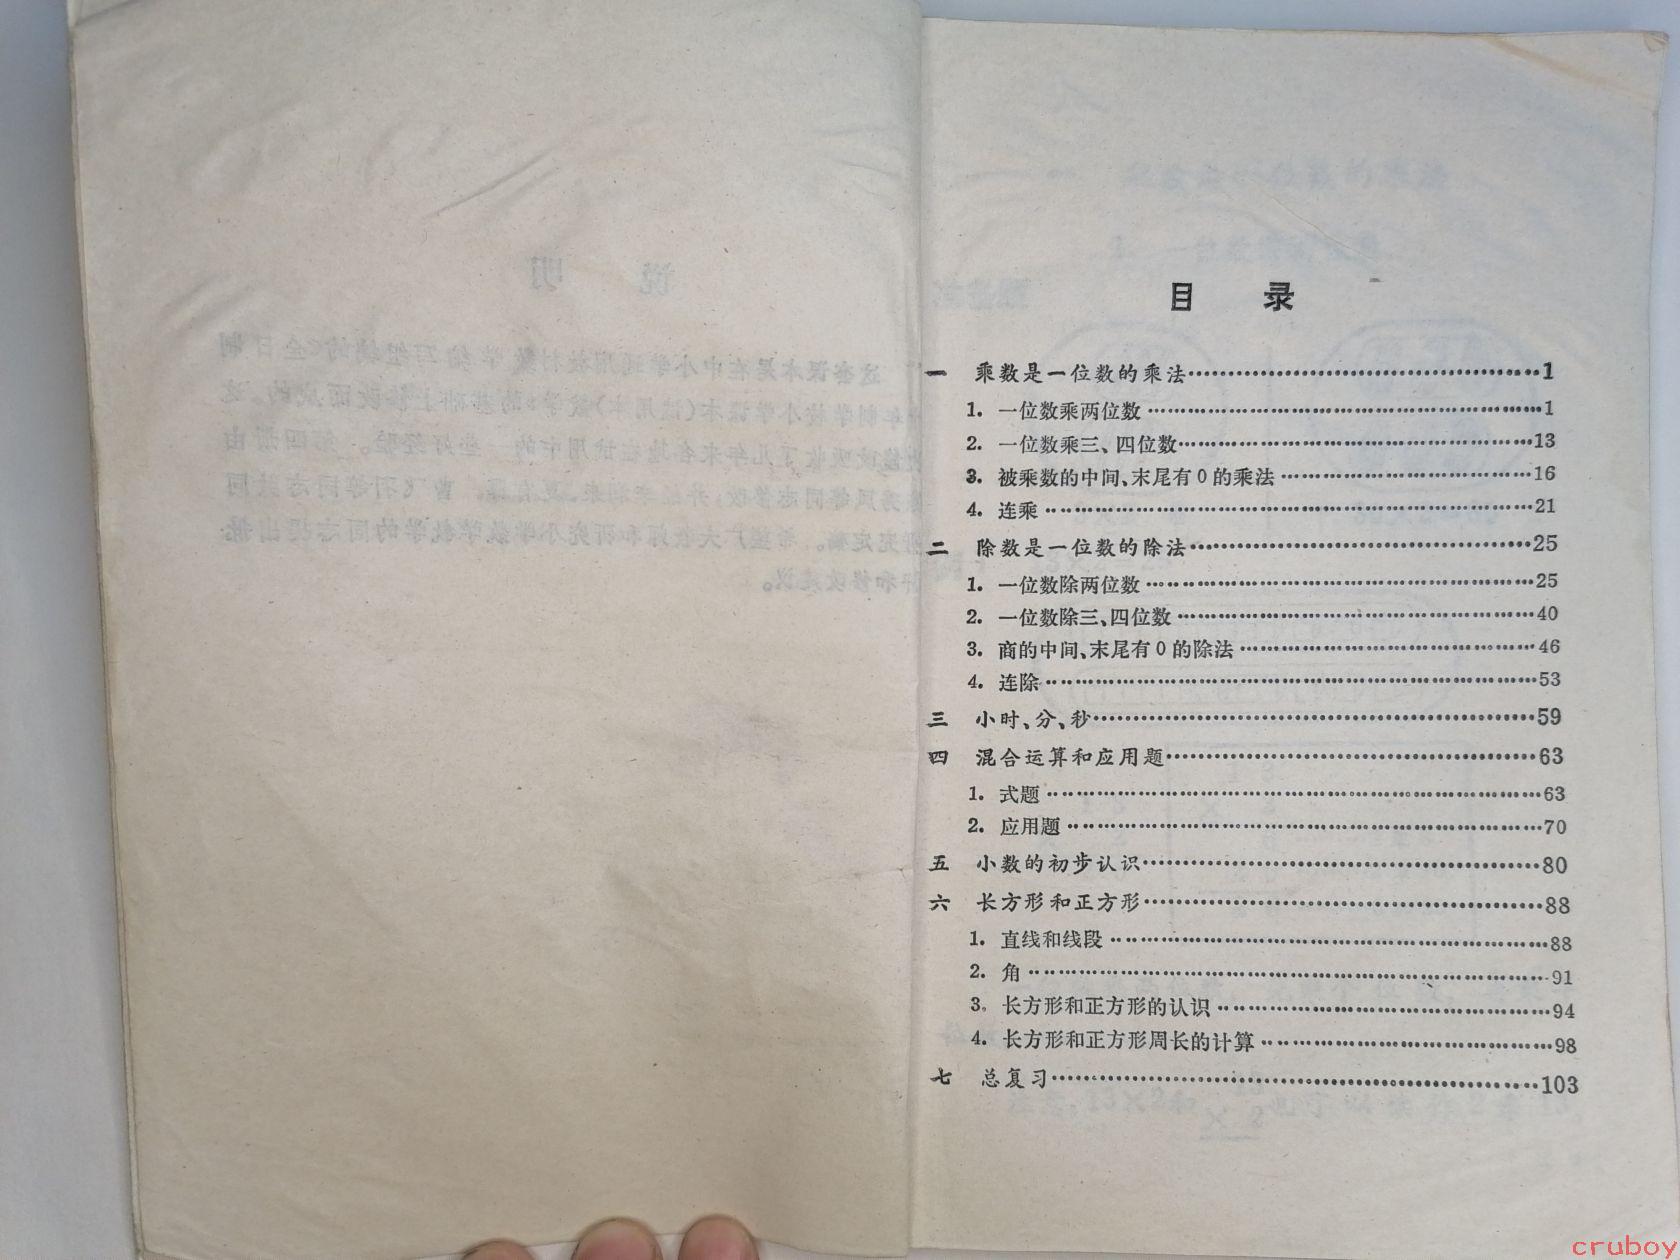 目 录
一 乘数是一位数的乘法……1
1. 一位数乘两位数……1
2. 一位数乘三、四位数……13
3. 被乘数的中间、末尾有0的乘法……16
4. 连乘……21
二 除数是一位数的除法……25
1. 一位数除两位数……25
2. 一位数除三、四位数……40
3. 商的中间、末尾有0的除法……46
4. 连除……53
三 小时、分、秒……59
四 混合运算和应用题……63
1. 式题……63
2. 应用题……70
五 小数的初步认识……80
六 长方形和正方形……88
1. 直线和线段……88
2. 角……91
3. 长方形和正方形的认识……94
4. 长方形和正方形周长的计算……98
七 总复习……103
cruboy